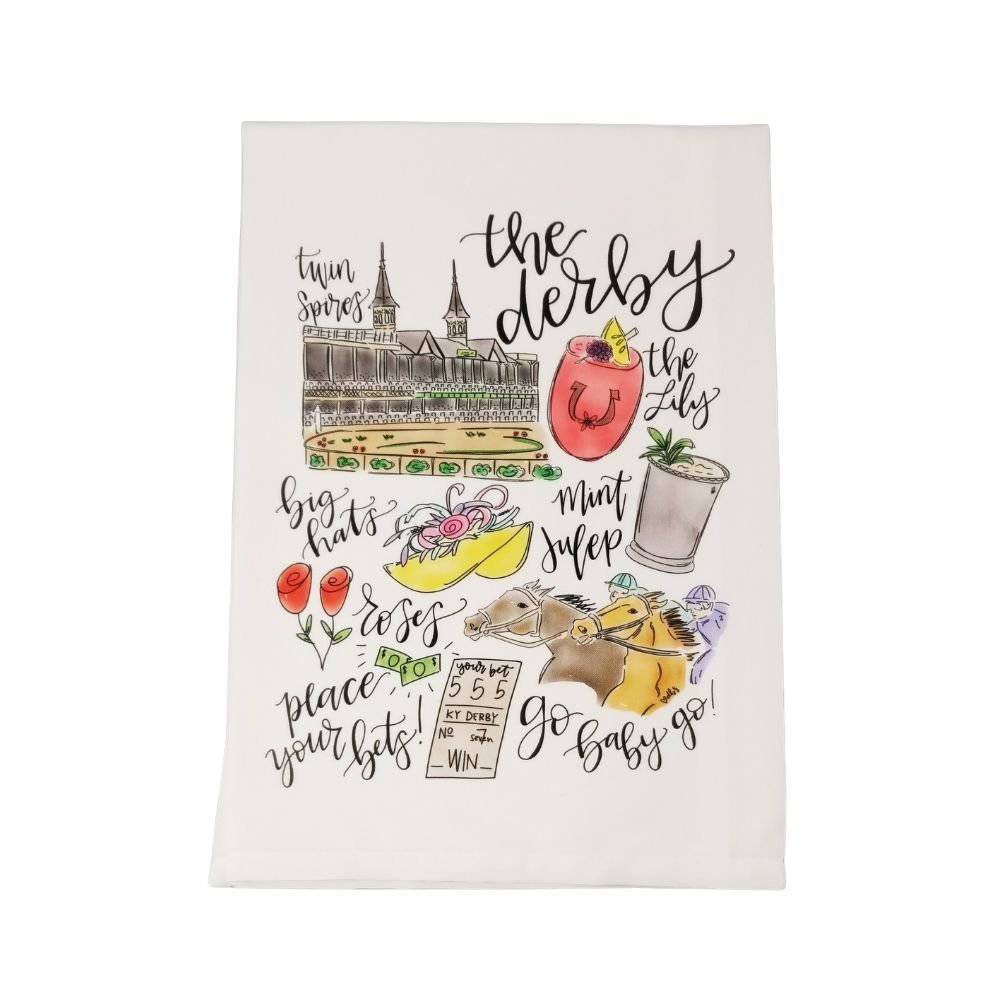 the
derby
twin
spires
the
Lily
mint
julep
big
hats
roses
place
your bets!
your bet
5 5 5
KY DERBY
No 7
seven
WIN
go
baby
go!